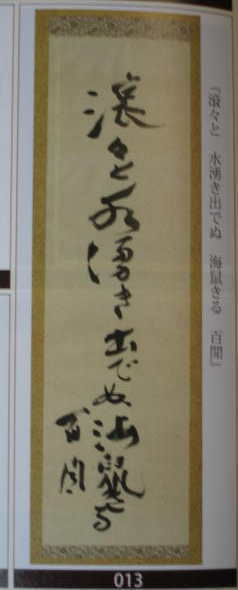 『滾々と　水湧き出でぬ　海鼠きる　百閒』
滾々と水湧き出でぬ海鼠きる
百閒
013